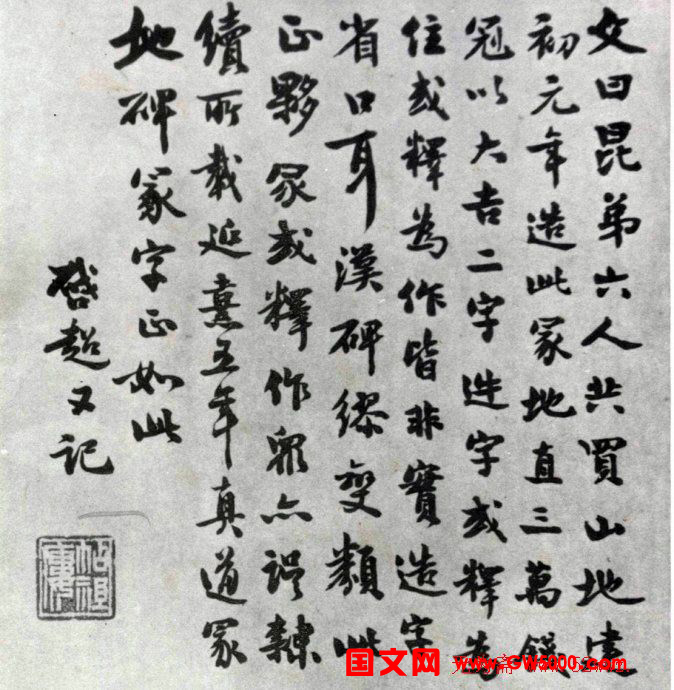 文曰昆弟六人共買山地建
初元年造此冢地直三萬錢
冠以大吉二字造字或釋為
住或釋為作皆非實造字
省口耳漢碑繆變類此
正夥冢或釋作眾亦誤隸
續所載延熹五年真道冢
地碑冢字正如此
啓超又記
国文网 www.GW5000.com